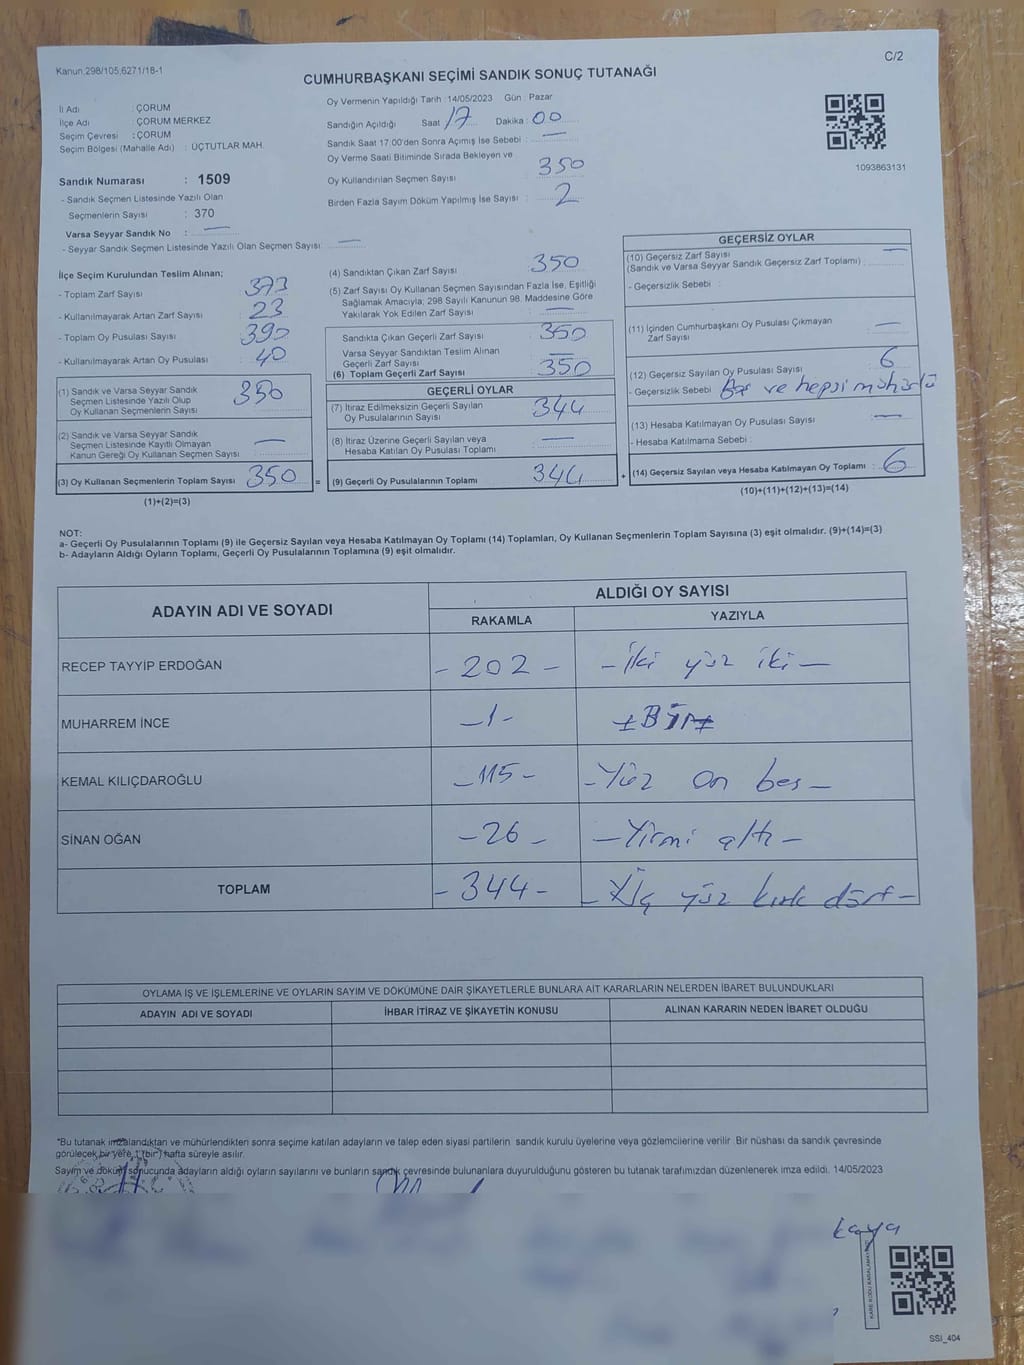 Kanun;298/105;6271/18-1
C/2
CUMHURBAŞKANI SEÇİMİ SANDIK SONUÇ TUTANAĞI
İl Adı : ÇORUM
İlçe Adı : ÇORUM MERKEZ
Seçim Çevresi : ÇORUM
Seçim Bölgesi (Mahalle Adı) : ÜÇTUTLAR MAH.
Oy Vermenin Yapıldığı Tarih : 14/05/2023 Gün : Pazar
Sandığın Açıldığı Saat 17 Dakika : 00
Sandık Saat 17:00'den Sonra Açımış İse Sebebi : —
Oy Verme Saati Bitiminde Sırada Bekleyen ve
Oy Kullandırılan Seçmen Sayısı : 350
Birden Fazla Sayım Döküm Yapılmış İse Sayısı : 2
1093863131
Sandık Numarası : 1509
- Sandık Seçmen Listesinde Yazılı Olan
Seçmenlerin Sayısı : 370
Varsa Seyyar Sandık No : —
- Seyyar Sandık Seçmen Listesinde Yazılı Olan Seçmen Sayısı : —
İlçe Seçim Kurulundan Teslim Alınan;
- Toplam Zarf Sayısı : 373
- Kullanılmayarak Artan Zarf Sayısı : 23
- Toplam Oy Pusulası Sayısı : 390
- Kullanılmayarak Artan Oy Pusulası : 40
(1) Sandık ve Varsa Seyyar Sandık
Seçmen Listesinde Yazılı Olup
Oy Kullanan Seçmenlerin Sayısı : 350
(2) Sandık ve Varsa Seyyar Sandık
Seçmen Listesinde Kayıtlı Olmayan
Kanun Gereği Oy Kullanan Seçmen Sayısı : —
(3) Oy Kullanan Seçmenlerin Toplam Sayısı : 350 =
(1)+(2)=(3)
(4) Sandıktan Çıkan Zarf Sayısı : 350
(5) Zarf Sayısı Oy Kullanan Seçmen Sayısından Fazla İse, Eşitliği
Sağlamak Amacıyla; 298 Sayılı Kanunun 98. Maddesine Göre
Yakılarak Yok Edilen Zarf Sayısı : —
Sandıkta Çıkan Geçerli Zarf Sayısı : 350
Varsa Seyyar Sandıktan Teslim Alınan
Geçerli Zarf Sayısı : —
(6) Toplam Geçerli Zarf Sayısı : 350
GEÇERLİ OYLAR
(7) İtiraz Edilmeksizin Geçerli Sayılan
Oy Pusulalarının Sayısı : 344
(8) İtiraz Üzerine Geçerli Sayılan veya
Hesaba Katılan Oy Pusulası Toplamı : —
(9) Geçerli Oy Pusulalarının Toplamı : 344 +
GEÇERSİZ OYLAR
(10) Geçersiz Zarf Sayısı
(Sandık ve Varsa Seyyar Sandık Geçersiz Zarf Toplamı) : —
- Geçersizlik Sebebi :
(11) İçinden Cumhurbaşkanı Oy Pusulası Çıkmayan
Zarf Sayısı : —
(12) Geçersiz Sayılan Oy Pusulası Sayısı : 6
- Geçersizlik Sebebi : Boş ve hepsi mühürlü
(13) Hesaba Katılmayan Oy Pusulası Sayısı : —
- Hesaba Katılmama Sebebi :
(14) Geçersiz Sayılan veya Hesaba Katılmayan Oy Toplamı : 6
(10)+(11)+(12)+(13)=(14)
NOT:
a- Geçerli Oy Pusulalarının Toplamı (9) ile Geçersiz Sayılan veya Hesaba Katılmayan Oy Toplamı (14) Toplamları, Oy Kullanan Seçmenlerin Toplam Sayısına (3) eşit olmalıdır. (9)+(14)=(3)
b- Adayların Aldığı Oyların Toplamı, Geçerli Oy Pusulalarının Toplamına (9) eşit olmalıdır.
ADAYIN ADI VE SOYADI ALDIĞI OY SAYISI
RAKAMLA YAZIYLA
RECEP TAYYİP ERDOĞAN - 202 - - İki yüz iki -
MUHARREM İNCE - 1 - - BİR -
KEMAL KILIÇDAROĞLU - 115 - - Yüz on beş -
SİNAN OĞAN - 26 - - Yirmi altı -
TOPLAM - 344 - - Üç yüz kırk dört -
OYLAMA İŞ VE İŞLEMLERİNE VE OYLARIN SAYIM VE DÖKÜMÜNE DAİR ŞİKAYETLERLE BUNLARA AİT KARARLARIN NELERDEN İBARET BULUNDUKLARI
ADAYIN ADI VE SOYADI İHBAR İTİRAZ VE ŞİKAYETİN KONUSU ALINAN KARARIN NEDEN İBARET OLDUĞU
*Bu tutanak imzalandıktan ve mühürlendikten sonra seçime katılan adayların ve talep eden siyasi partilerin sandık kurulu üyelerine veya gözlemcilerine verilir. Bir nüshası da sandık çevresinde
görülecek bir yere 1 (bir) hafta süreyle asılır.
Sayım ve döküm sonucunda adayların aldığı oyların sayılarını ve bunların sandık çevresinde bulunanlara duyurulduğunu gösteren bu tutanak tarafımızdan düzenlenerek imza edildi. 14/05/2023
kaya
SSİ_404